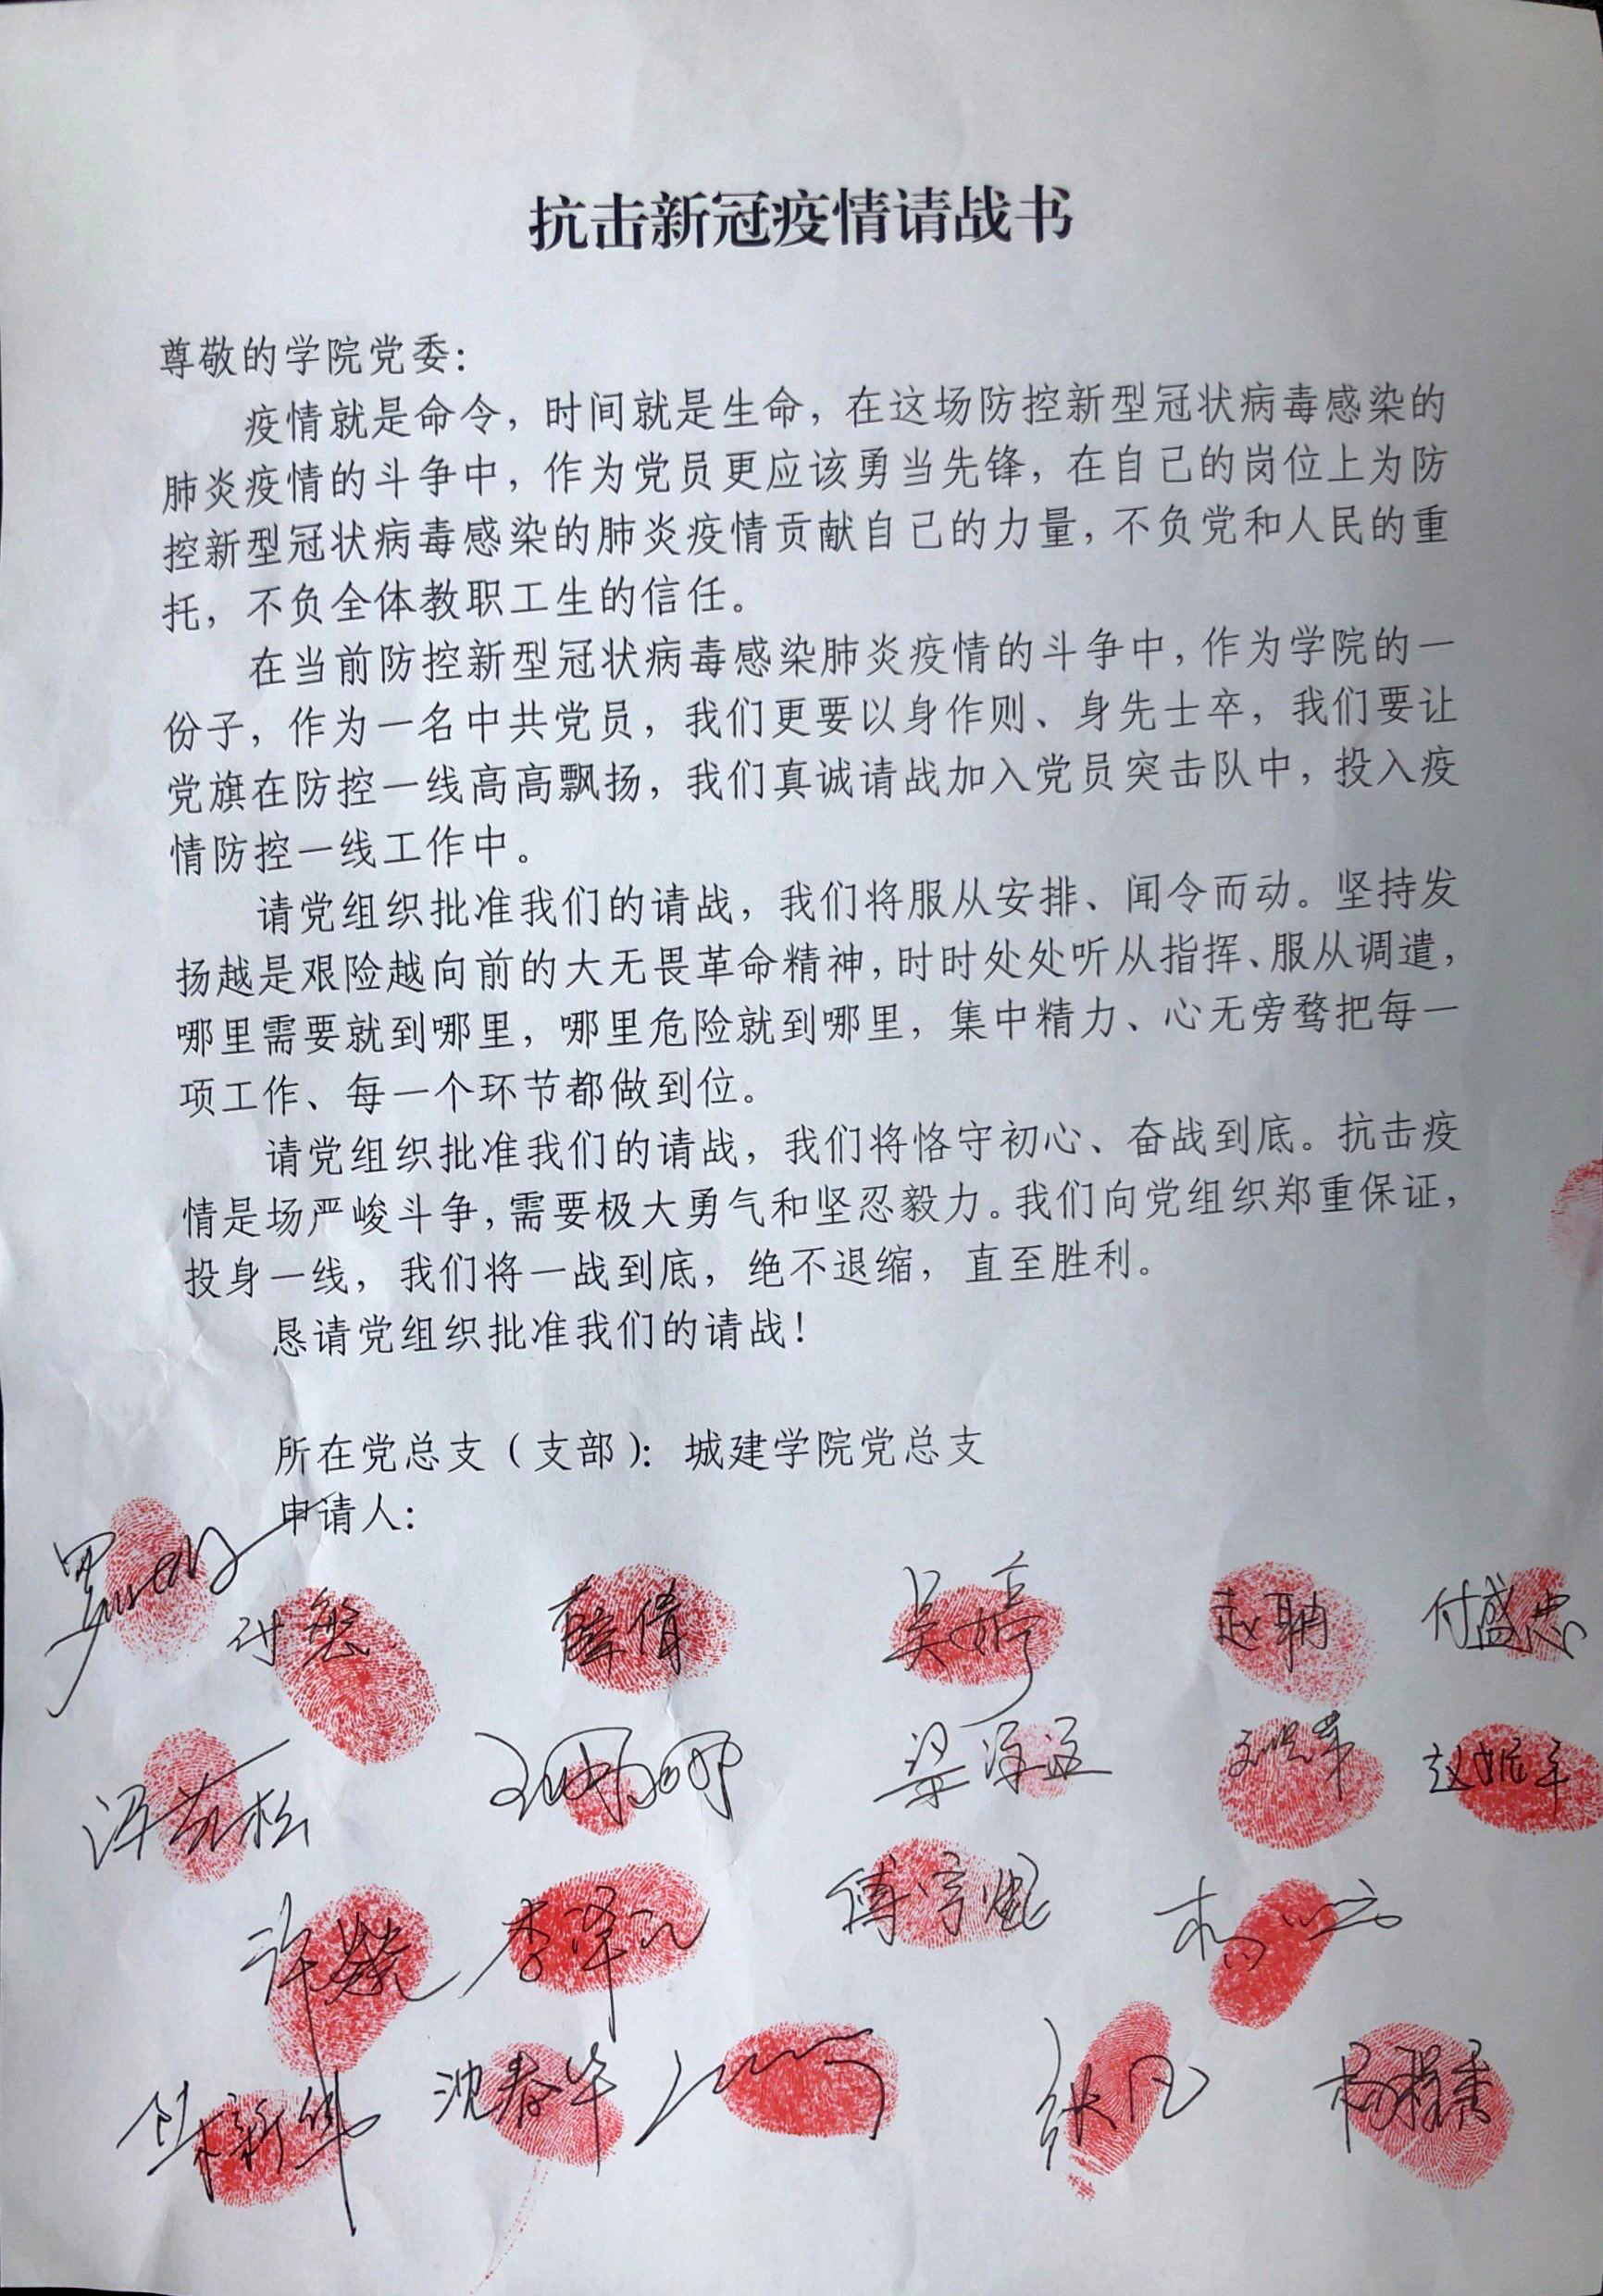 抗击新冠疫情请战书
尊敬的学院党委：
疫情就是命令，时间就是生命，在这场防控新型冠状病毒感染的
肺炎疫情的斗争中，作为党员更应该勇当先锋，在自己的岗位上为防
控新型冠状病毒感染的肺炎疫情贡献自己的力量，不负党和人民的重
托，不负全体教职工生的信任。
在当前防控新型冠状病毒感染肺炎疫情的斗争中，作为学院的一
份子，作为一名中共党员，我们更要以身作则、身先士卒，我们要让
党旗在防控一线高高飘扬，我们真诚请战加入党员突击队中，投入疫
情防控一线工作中。
请党组织批准我们的请战，我们将服从安排、闻令而动。坚持发
扬越是艰险越向前的大无畏革命精神，时时处处听从指挥、服从调遣，
哪里需要就到哪里，哪里危险就到哪里，集中精力、心无旁骛把每一
项工作、每一个环节都做到位。
请党组织批准我们的请战，我们将恪守初心、奋战到底。抗击疫
情是场严峻斗争，需要极大勇气和坚忍毅力。我们向党组织郑重保证，
投身一线，我们将一战到底，绝不退缩，直至胜利。
恳请党组织批准我们的请战！
所在党总支（支部）：城建学院党总支
申请人：
薛倩 吴婷 付盛忠
沈春华 张凡